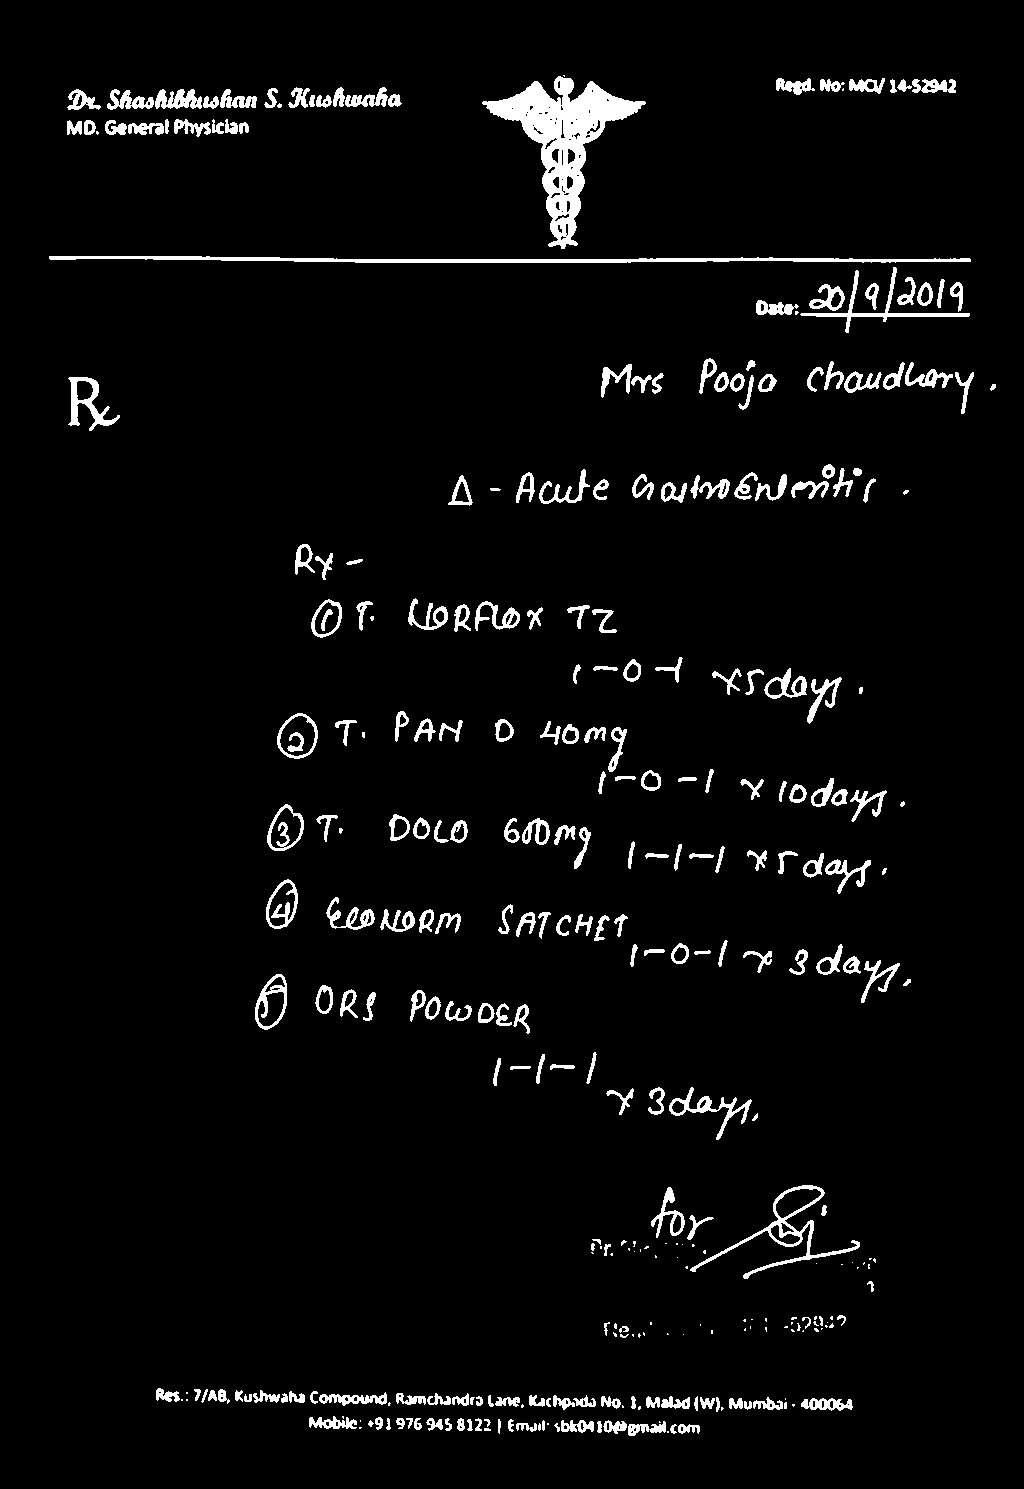 Dr. Shashibhushan S. Kushwaha
MD. General Physician
Regd. No: MCI/ 14-52942
Date: 20/9/2019
Rx
Mrs Pooja Chaudhary.
Δ - Acute GastroEnteritis.
Rx -
① T. NORFLOX TZ
1-0-1 x 5 days.
② T. PAN D 40mg
1-0-1 x 10 days.
③ T. DOLO 600mg 1-1-1 x 5 days.
④ ECONORM SATCHET
1-0-1 x 3 days.
⑤ ORS POWDER
1-1-1
x 3 days.
for
Dr.
-52942
Res.: 7/AB, Kushwaha Compound, Ramchandra Lane, Kachpada No. 1, Malad (W), Mumbai - 400064
Mobile: +91 976 945 8122 | Email: sbk0410@gmail.com